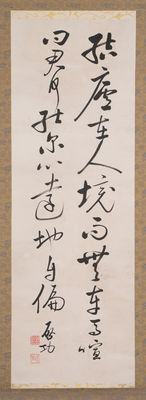 结廬在人境而無車馬喧
问君何能尔心遠地自偏
啟功